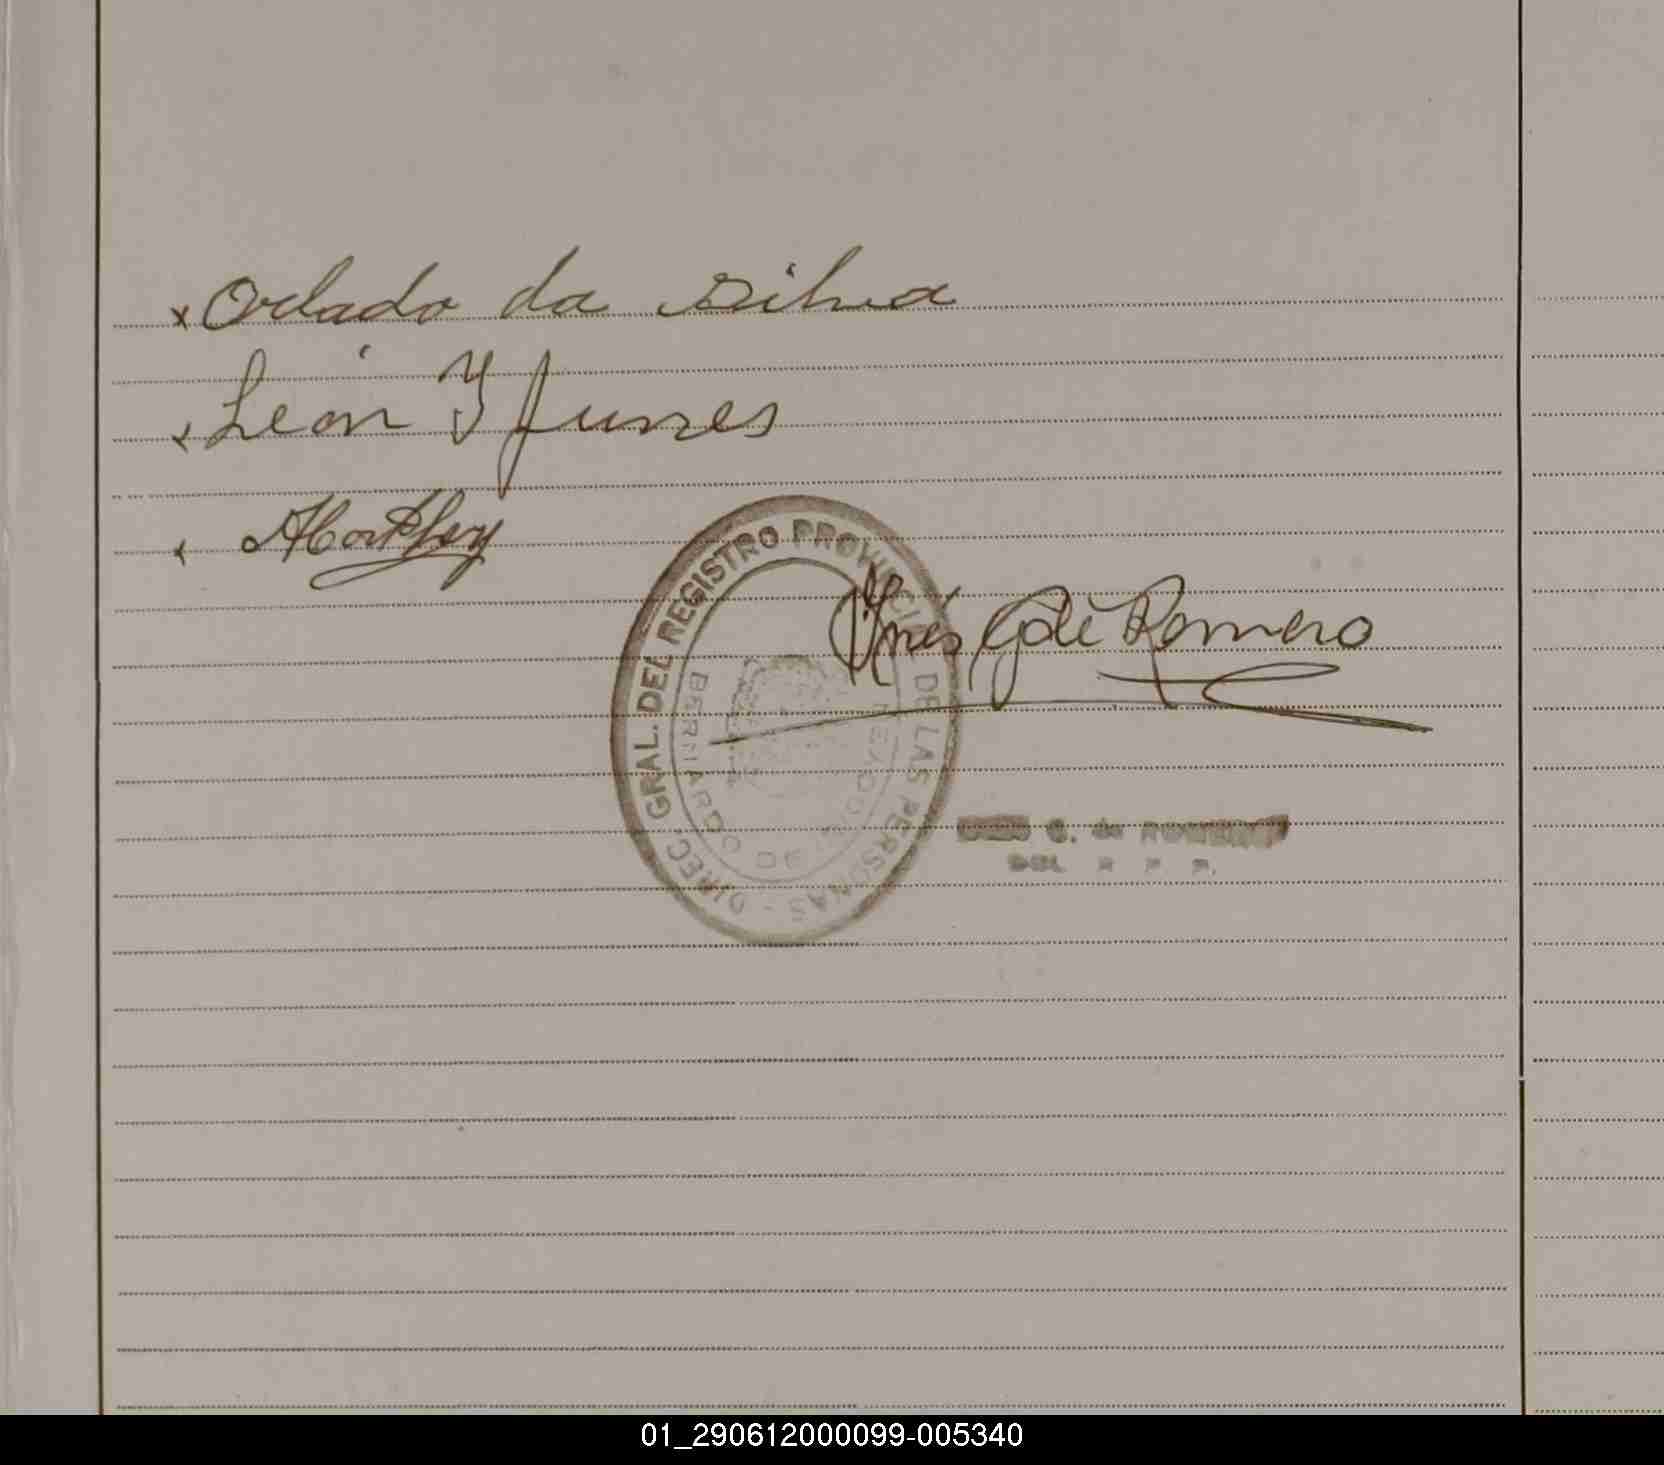 x Orlado da Silva
x León Y Funes
x
Inés G de Romero
DIREC. GRAL. DEL REGISTRO PROVINCIAL DE LAS PERSONAS -
BERNARDO DE
G. de ROMERO
DEL R P P.
01_290612000099-005340